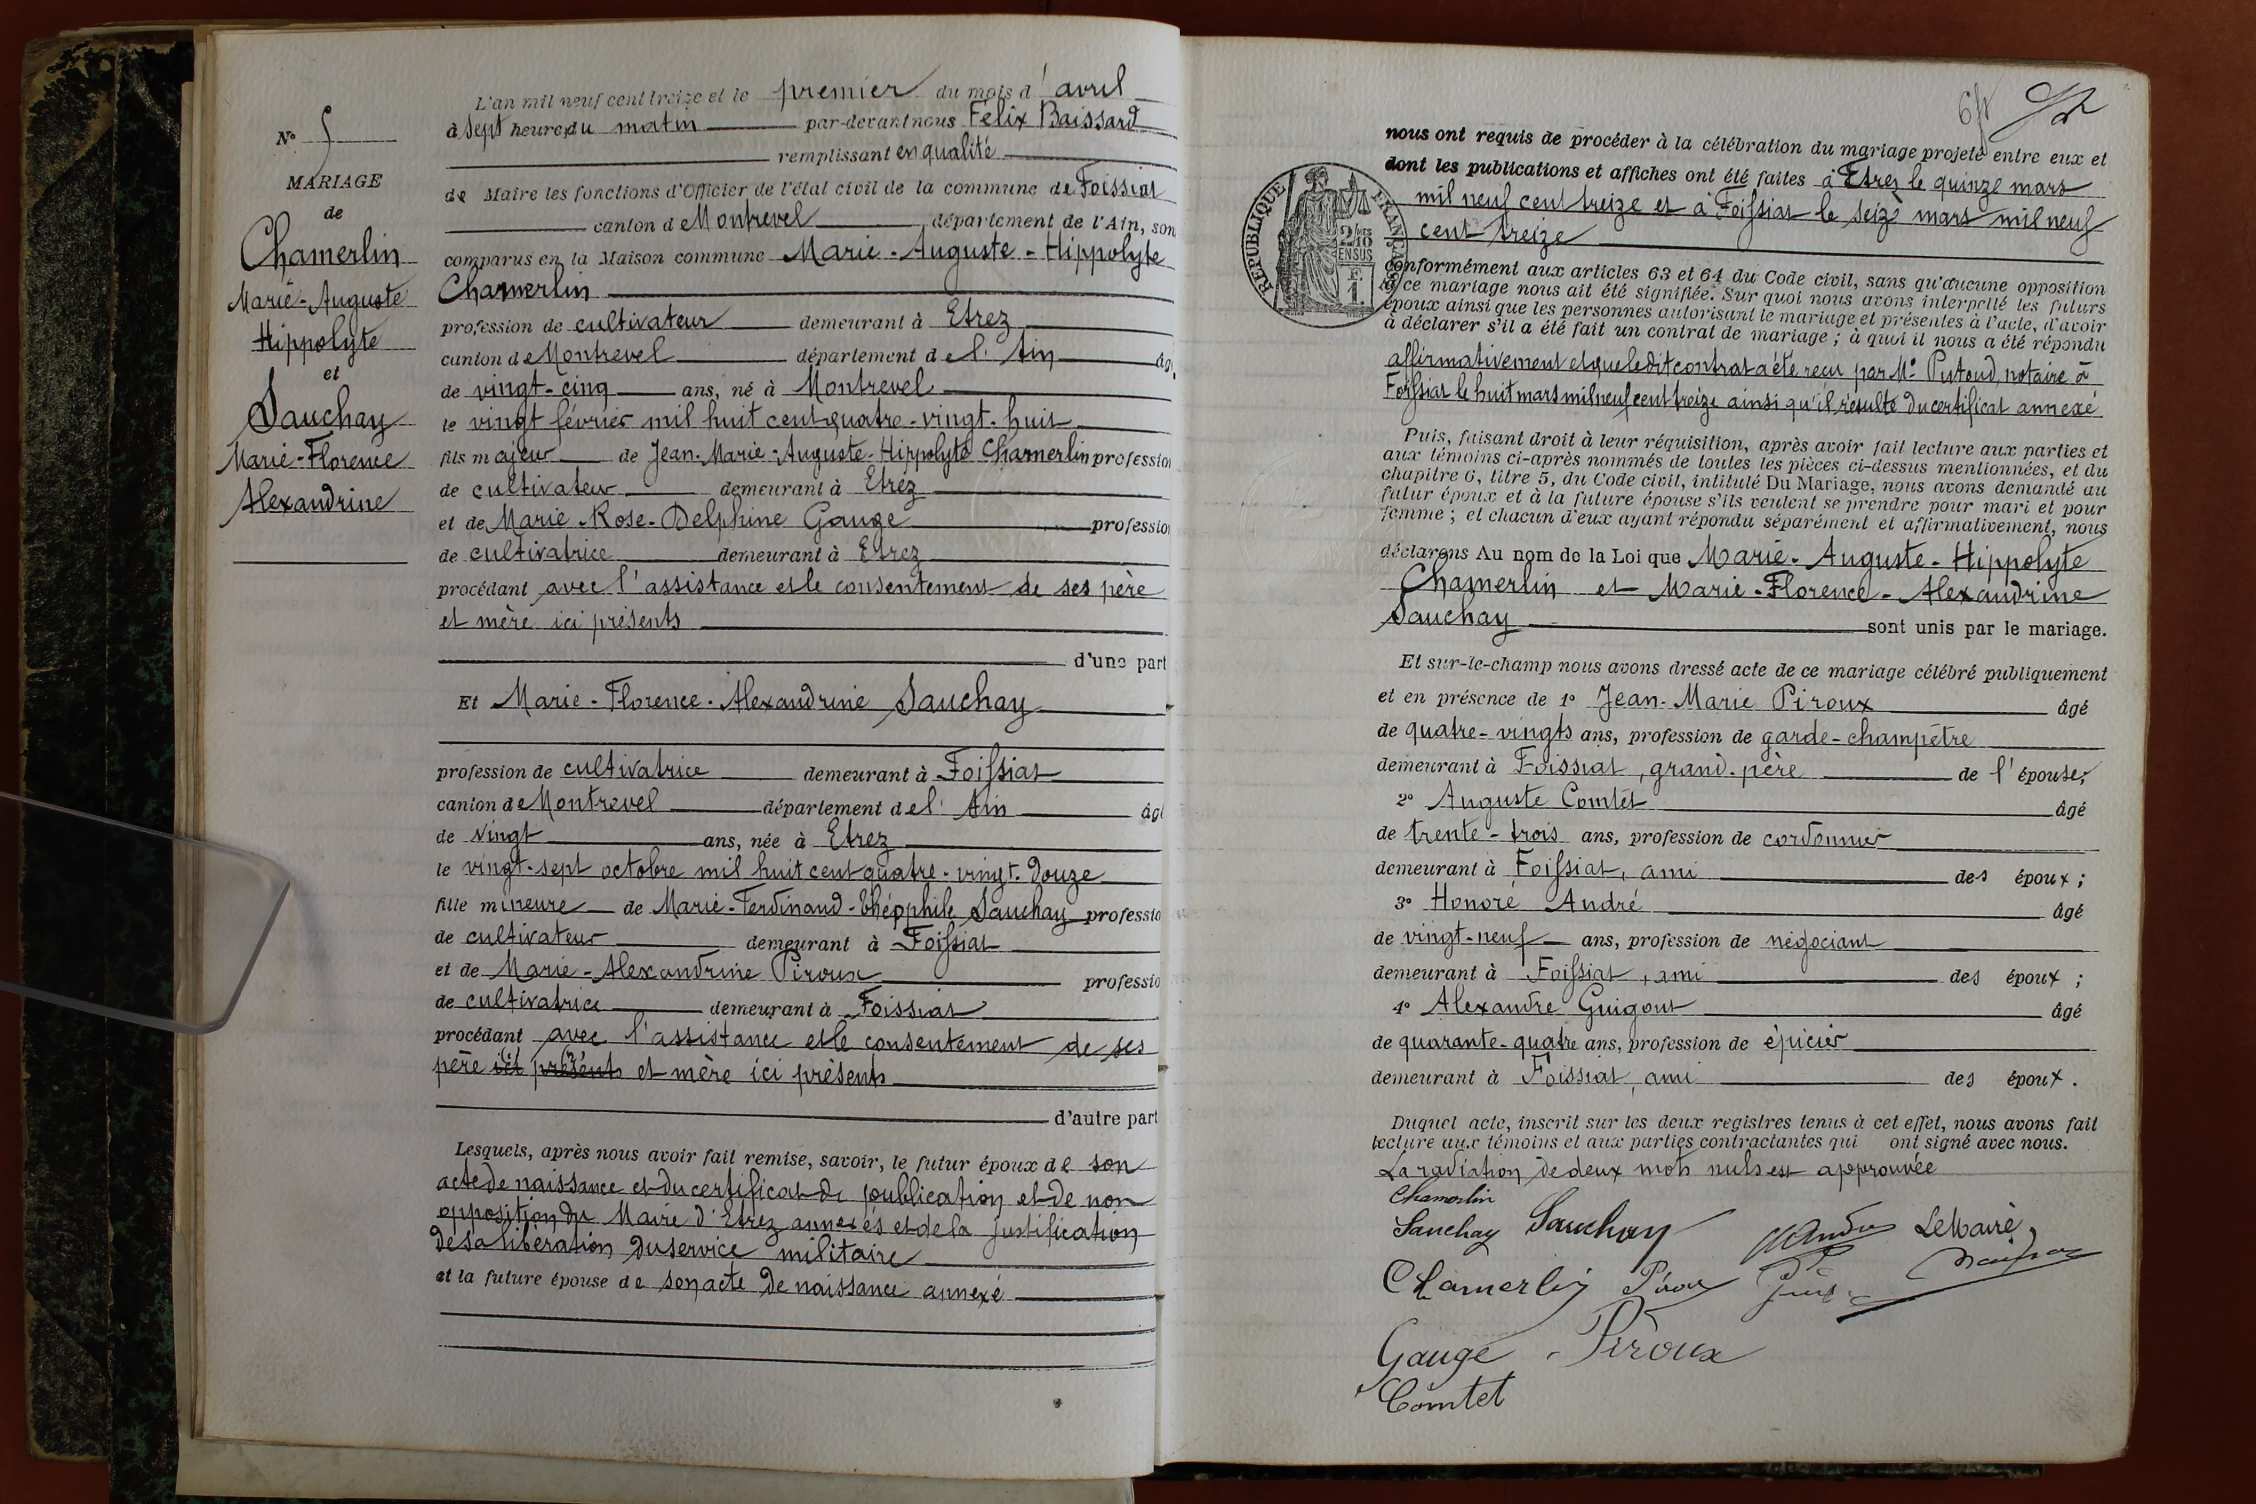 N° 5
MARIAGE
de
Chamerlin
Marie-Auguste
Hippolyte
et
Sauchay
Marie-Florence
Alexandrine
L'an mil neuf cent treize et le premier du mois d'avril
à sept heures du matin par-devant nous Félix Baissard
remplissant en qualité
de Maire les fonctions d'Officier de l'état civil de la commune de Foissiat
canton de Montrevel département de l'Ain, son
comparus en la Maison commune Marie-Auguste-Hippolyte
Chamerlin
profession de cultivateur demeurant à Etrez
canton de Montrevel département de l'Ain âg
de vingt-cinq ans, né à Montrevel
le vingt février mil huit cent quatre-vingt-huit
fils majeur de Jean-Marie-Auguste-Hippolyte Chamerlin profession
de cultivateur demeurant à Etrez
et de Marie-Rose-Delphine Gauge profession
de cultivatrice demeurant à Etrez
procédant avec l'assistance et le consentement de ses père
et mère ici présents
d'une part
Et Marie-Florence-Alexandrine Sauchay
profession de cultivatrice demeurant à Foissiat
canton de Montrevel département de l'Ain âgé
de vingt ans, née à Etrez
le vingt-sept octobre mil huit cent quatre-vingt-douze
fille mineure de Marie-Ferdinand-Théophile Sauchay professio
de cultivateur demeurant à Foissiat
et de Marie-Alexandrine Piroux professio
de cultivatrice demeurant à Foissiat
procédant avec l'assistance et le consentement de ses
père ici présents et mère ici présents
d'autre part
Lesquels, après nous avoir fait remise, savoir, le futur époux de son
acte de naissance et du certificat de publication et de non
opposition du Maire d'Etrez annexés et de la justification
de sa libération du service militaire
et la future épouse de son acte de naissance annexé
nous ont requis de procéder à la célébration du mariage projeté entre eux et
dont les publications et affiches ont été faites à Etrez le quinze mars
mil neuf cent treize et à Foissiat le seize mars mil neuf
cent treize
RÉPUBLIQUE FRANÇAISE
2/10
EN SUS
F.
1.
conformément aux articles 63 et 64 du Code civil, sans qu'aucune opposition
à ce mariage nous ait été signifiée. Sur quoi nous avons interpellé les futurs
époux ainsi que les personnes autorisant le mariage et présentes à l'acte, d'avoir
à déclarer s'il a été fait un contrat de mariage ; à quoi il nous a été répondu
affirmativement et que ledit contrat a été reçu par Me notaire à
Foissiat le huit mars mil neuf cent treize ainsi qu'il résulte du certificat annexé
Puis, faisant droit à leur réquisition, après avoir fait lecture aux parties et
aux témoins ci-après nommés de toutes les pièces ci-dessus mentionnées, et du
chapitre 6, titre 5, du Code civil, intitulé Du Mariage, nous avons demandé au
futur époux et à la future épouse s'ils veulent se prendre pour mari et pour
femme ; et chacun d'eux ayant répondu séparément et affirmativement, nous
déclarons Au nom de la Loi que Marie-Auguste-Hippolyte
Chamerlin et Marie-Florence-Alexandrine
Sauchay sont unis par le mariage.
Et sur-le-champ nous avons dressé acte de ce mariage célébré publiquement
et en présence de 1° Jean-Marie Piroux âgé
de quatre-vingts ans, profession de garde-champêtre
demeurant à Foissiat, grand-père de l'épouse;
2° Auguste Comtet âgé
de trente-trois ans, profession de cordonnier
demeurant à Foissiat, ami des époux ;
3° Honoré André âgé
de vingt-neuf ans, profession de négociant
demeurant à Foissiat, ami des époux ;
4° Alexandre Guigout âgé
de quarante-quatre ans, profession de épicier
demeurant à Foissiat, ami des époux.
Duquel acte, inscrit sur les deux registres tenus à cet effet, nous avons fait
lecture aux témoins et aux parties contractantes qui ont signé avec nous.
La radiation de deux mots nuls est approuvée
Chamerlin
Sauchay Sauchay André Le Maire,
Chamerlin Piroux
Gauge Piroux
Comtet